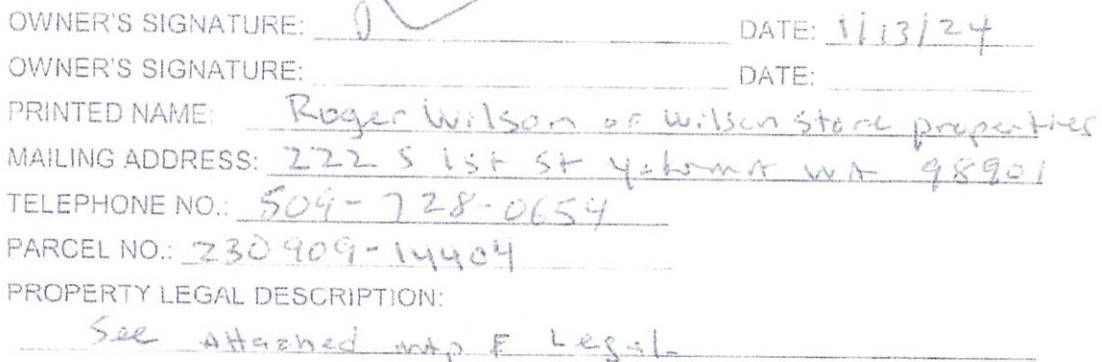 OWNER'S SIGNATURE: DATE: 1/13/24
OWNER'S SIGNATURE: DATE:
PRINTED NAME: Roger Wilson or Wilson Stone properties
MAILING ADDRESS: 222 S 1st St Yakima WA 98901
TELEPHONE NO.: 509-728-0654
PARCEL NO.: 230909-14404
PROPERTY LEGAL DESCRIPTION:
See Attached Legal